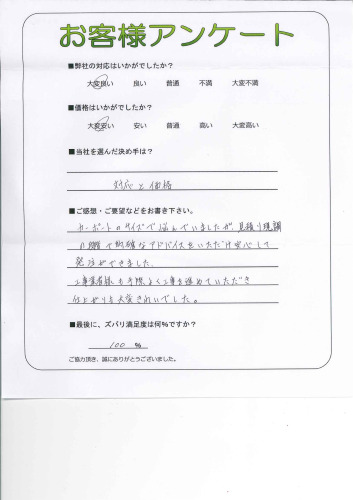 お客様アンケート
■弊社の対応はいかがでしたか？
大変良い 良い 普通 不満 大変不満
■価格はいかがでしたか？
大変安い 安い 普通 高い 大変高い
■当社を選んだ決め手は？
対応と価格
■ご感想・ご要望などをお書き下さい。
カーポートのサイズで悩んでいましたが、見積り現調
段階で的確なアドバイスをいただけ安心して
発注ができました。
工事業者様も手際よく工事を進めていただき
仕上がりも大変きれいでした。
■最後に、ズバリ満足度は何%ですか？
100 %
ご協力頂き、誠にありがとうございました。